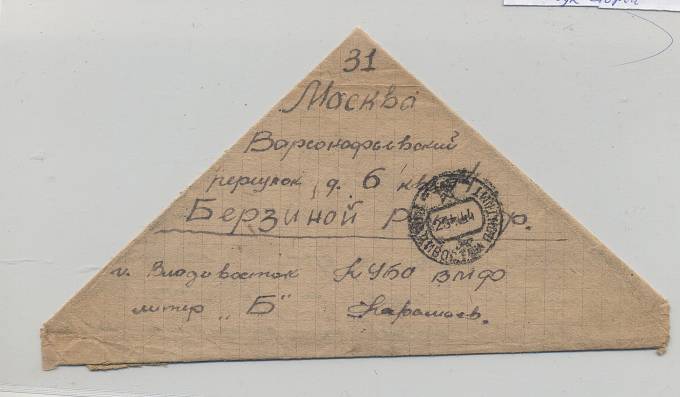 31
Москва
Варсонофьевский
переулок, д. 6 кв.
Берзиной
г. Владивосток КУБО ВМФ
литер "Б"